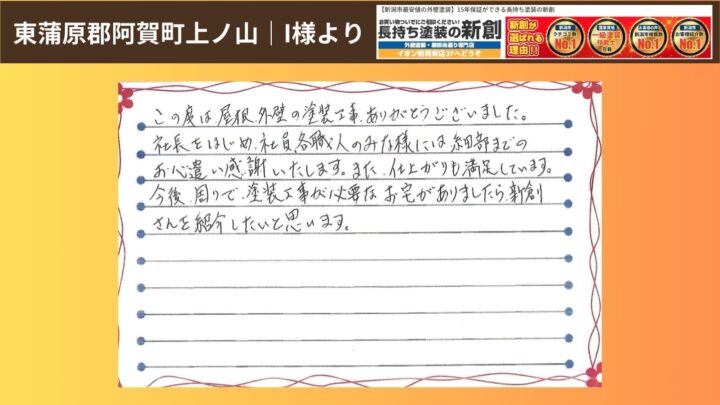 東蒲原郡阿賀町上ノ山｜I様より
【新潟市最安値の外壁塗装】15年保証ができる長持ち塗装の新創
お買い物ついでにご相談ください!
長持ち塗装の新創
外壁塗装・屋根雨漏り専門店
イオン新潟東店2Fへどうぞ
新創が
選ばれる
理由!!
クチコミ数
NO.1
一級塗装
技能士
NO.1
NO.1
この度は、屋根、外壁の塗装工事、ありがとうございました。
社長をはじめ、社員、各職人のみな様には、細部までの
お心遣い感謝いたします。また、仕上がりも満足しています。
今後、周りで、塗装工事が必要なお宅がありましたら、新創
さんを紹介したいと思います。